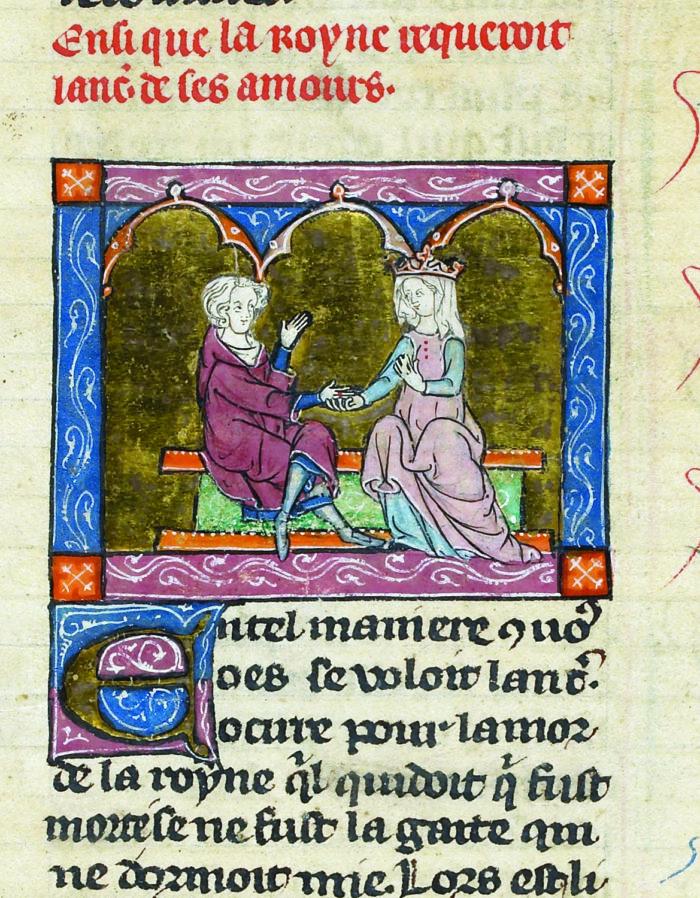 Ensi que la royne requeroit
lanc. de ses amours.
Entel maniere 9 uo9
oes se voloit lanc.
ocirre pour lamor
de la royne ql quidoit q fust
morte se ne fust la garte qui
ne dormoit mie. Lors est li